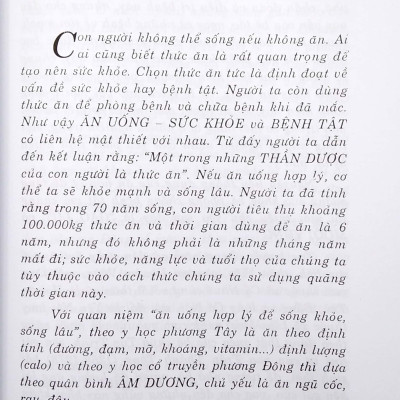 Con người không thể sống nếu không ăn. Ai
ai cũng biết thức ăn là rất quan trọng để
tạo nên sức khỏe. Chọn thức ăn tức là định đoạt về
vấn đề sức khỏe hay bệnh tật. Người ta còn dùng
thức ăn để phòng bệnh và chữa bệnh khi đã mắc.
Như vậy ĂN UỐNG – SỨC KHỎE và BỆNH TẬT
có liên hệ mật thiết với nhau. Từ đấy người ta dẫn
đến kết luận rằng: “Một trong những THẦN DƯỢC
của con người là thức ăn”. Nếu ăn uống hợp lý, cơ
thể ta sẽ khỏe mạnh và sống lâu. Người ta đã tính
rằng trong 70 năm sống, con người tiêu thụ khoảng
100.000kg thức ăn và thời gian dùng để ăn là 6
năm, nhưng đó không phải là những tháng năm
mất đi; sức khỏe, năng lực và tuổi thọ của chúng ta
tùy thuộc vào cách thức chúng ta sử dụng quãng
thời gian này.
Với quan niệm “ăn uống hợp lý để sống khỏe,
sống lâu”, theo y học phương Tây là ăn theo định
tính (đường, đạm, mỡ, khoáng, vitamin...) định lượng
(calo) và theo y học cổ truyền phương Đông thì dựa
theo quân bình ÂM DƯƠNG, chủ yếu là ăn ngũ cốc,
rau, đậu